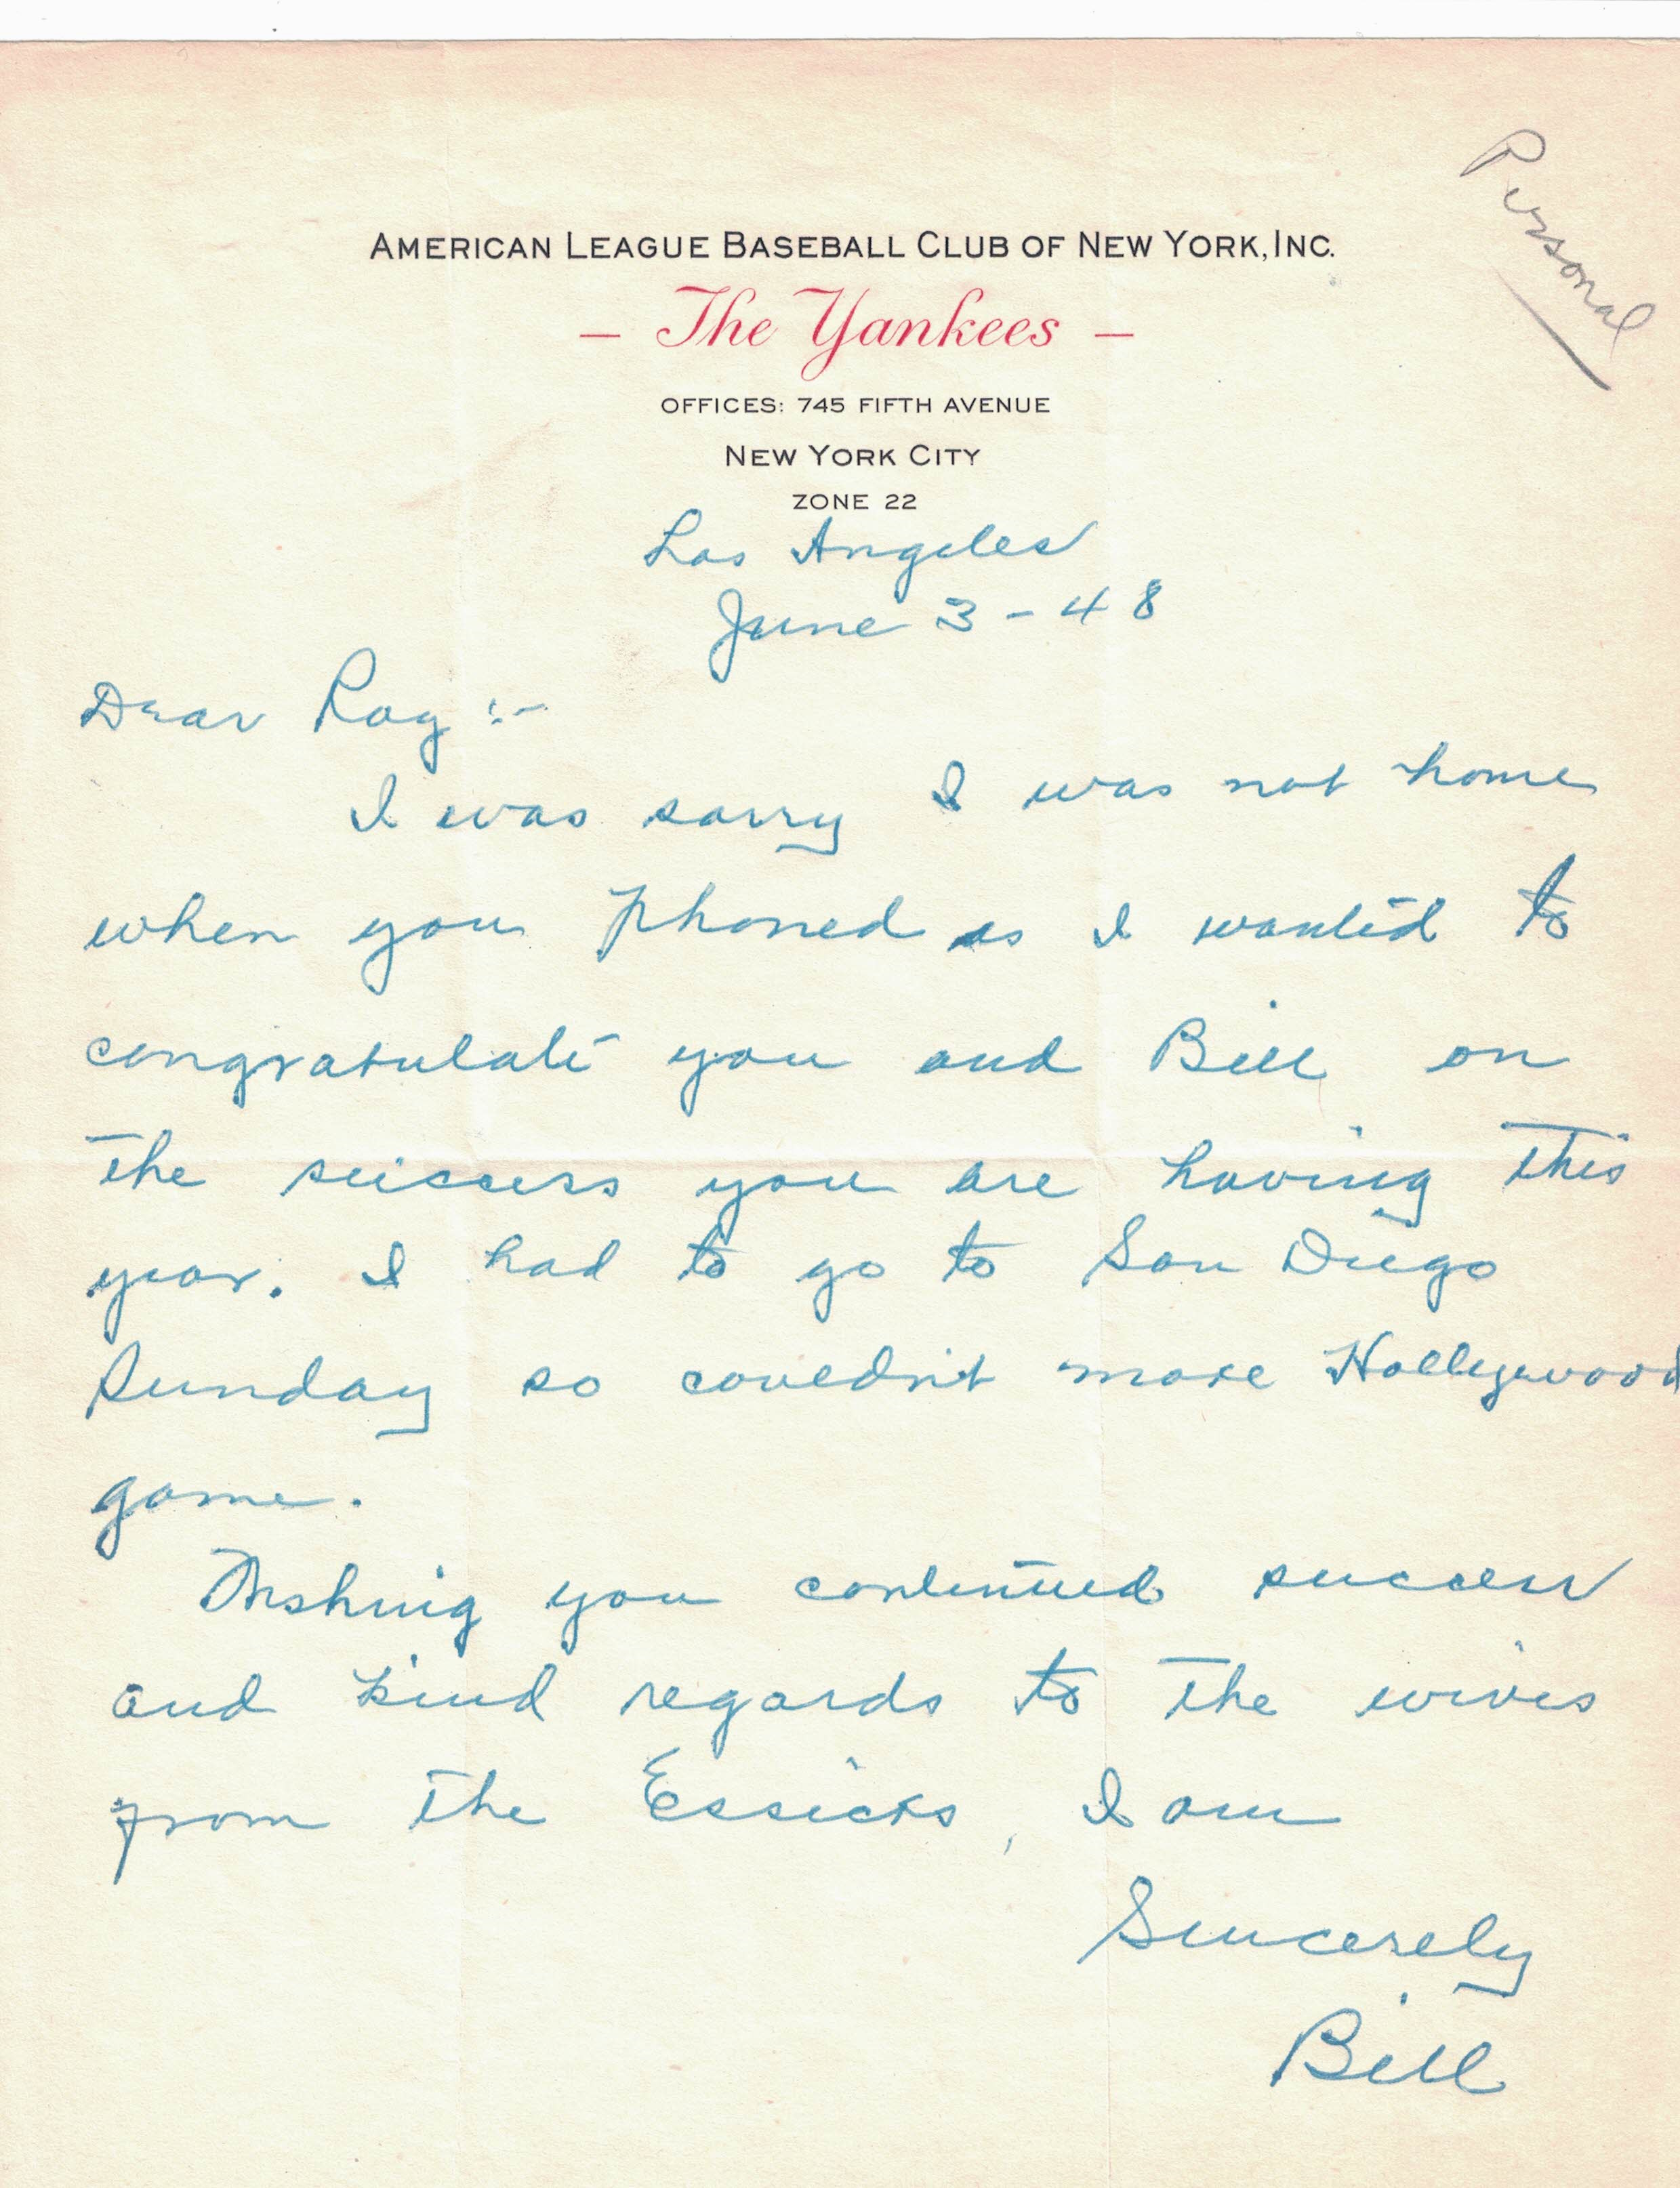 Personal
AMERICAN LEAGUE BASEBALL CLUB OF NEW YORK, INC.
– The Yankees –
OFFICES: 745 FIFTH AVENUE
NEW YORK CITY
ZONE 22
Los Angeles
June 3 - 48
Dear Ray :-
I was sorry I was not home
when you phoned as I wanted to
congratulate you and Bill on
the success you are having this
year. I had to go to San Diego
Sunday so couldn't make Hollywood
game.
Wishing you continued success
and kind regards to the wives
from the Essicks, I am
Sincerely
Bill